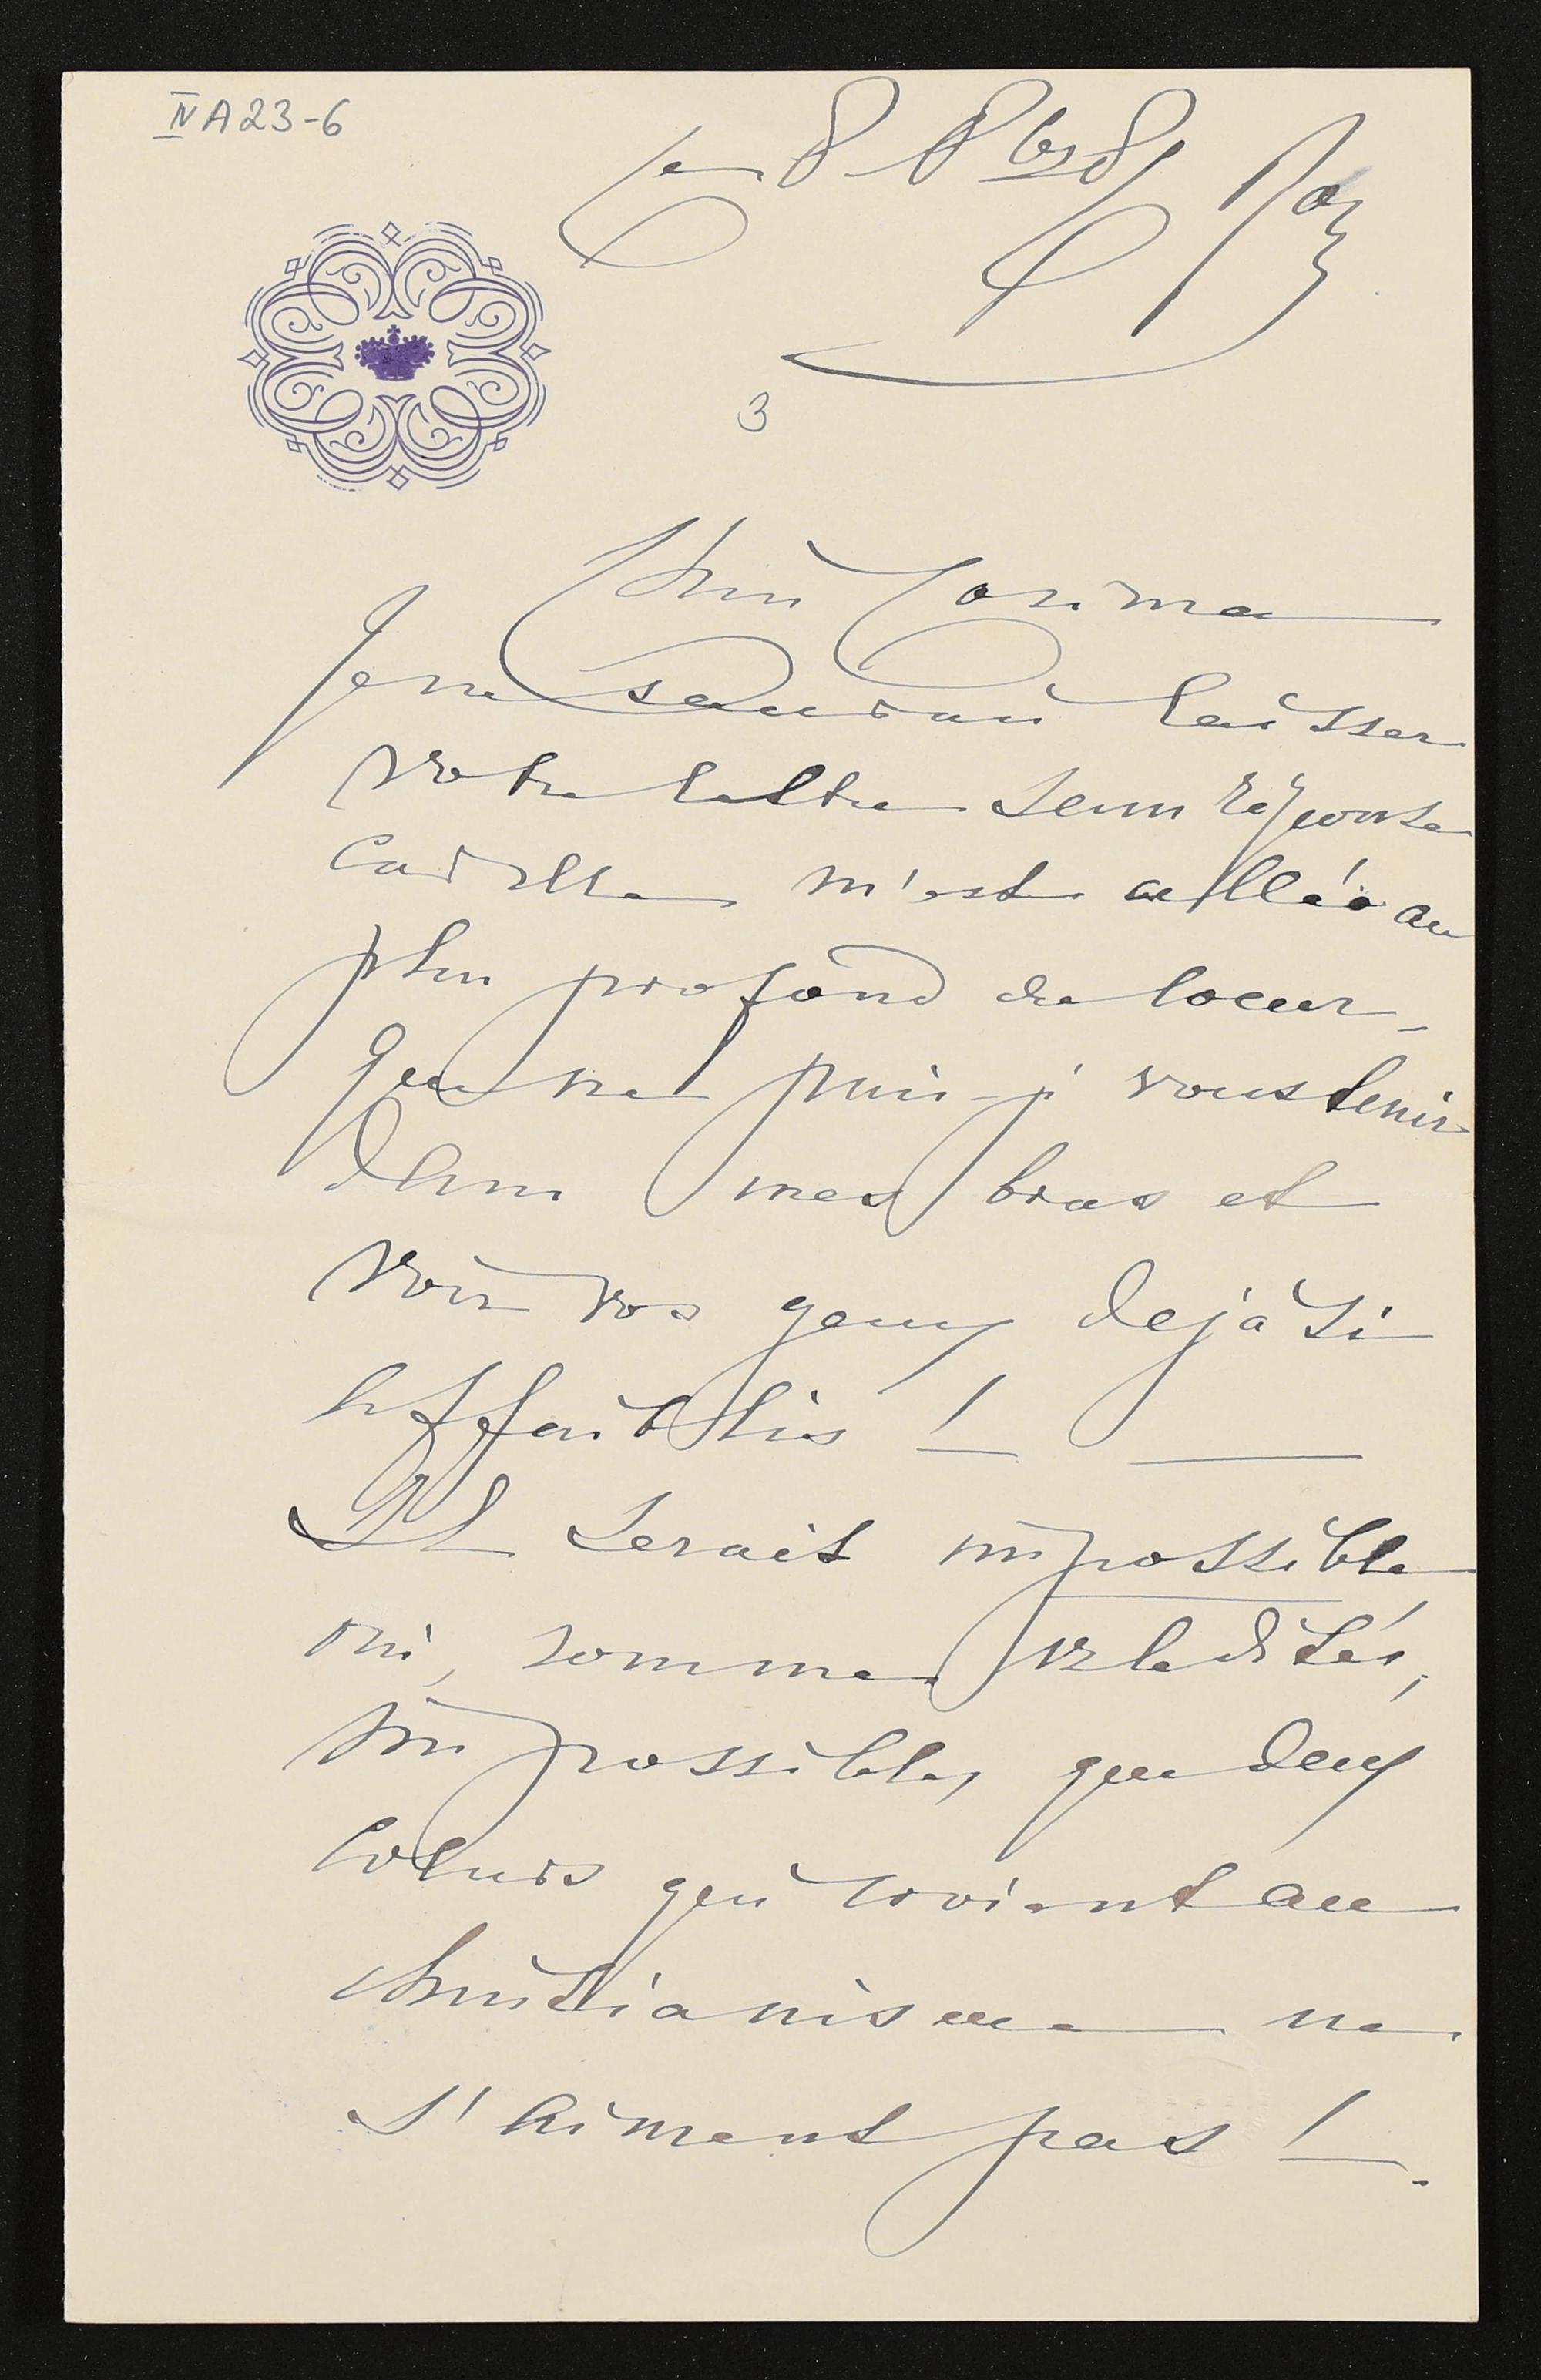 IV A 23-6
le 8 8brs
3
Cosima
Je ne saurai laisser
votre lettre sans réponse
car elle m'est allée au
plus profond du coeur,
Que ne puis-j vous tenir
dans mes bras et
voir vos yeux dejà si
affaiblis !
Il serait impossible
oui,
impossible, que deux
coeurs qui croient au
christianisme ne
s'aiment pas !